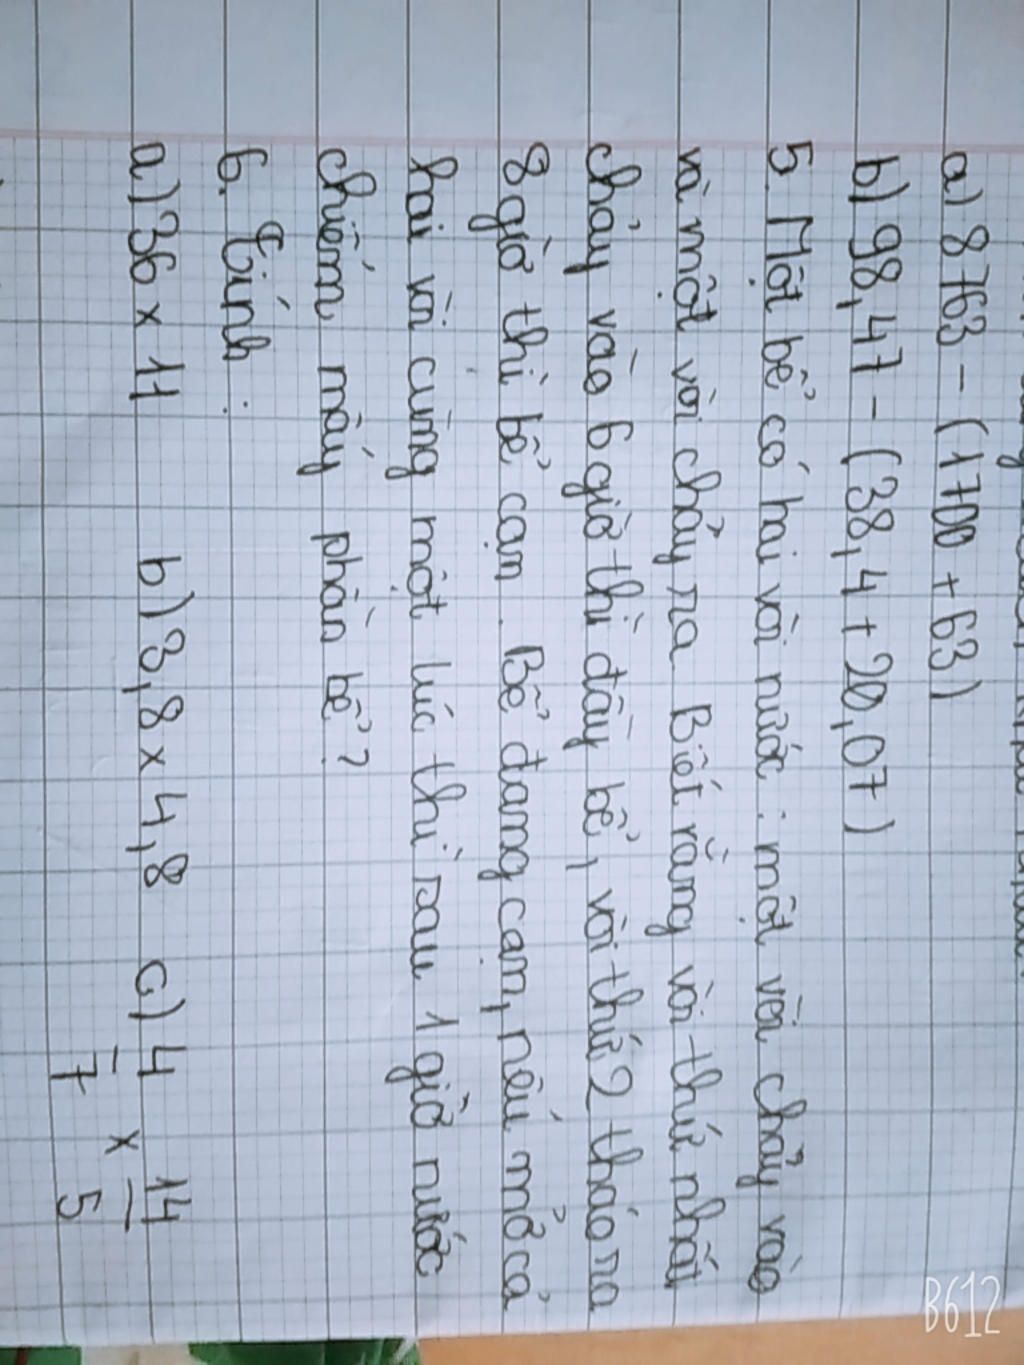 a) 8763 - (1700 + 63)
b) 98,47 - (38,4 + 20,07)
5. Một bể có hai vòi nước : một vòi chảy vào
và một vòi chảy ra. Biết rằng vòi thứ nhất
chảy vào 6 giờ thì đầy bể, vòi thứ 2 tháo ra
8 giờ thì bể cạn. Bể đang cạn, nếu mở cả
hai vòi cùng một lúc thì sau 1 giờ nước
chiếm mấy phần bể?
6. Tính :
a) 36 x 11 b) 3,8 x 4,8 c) 4/7 x 14/5
B612